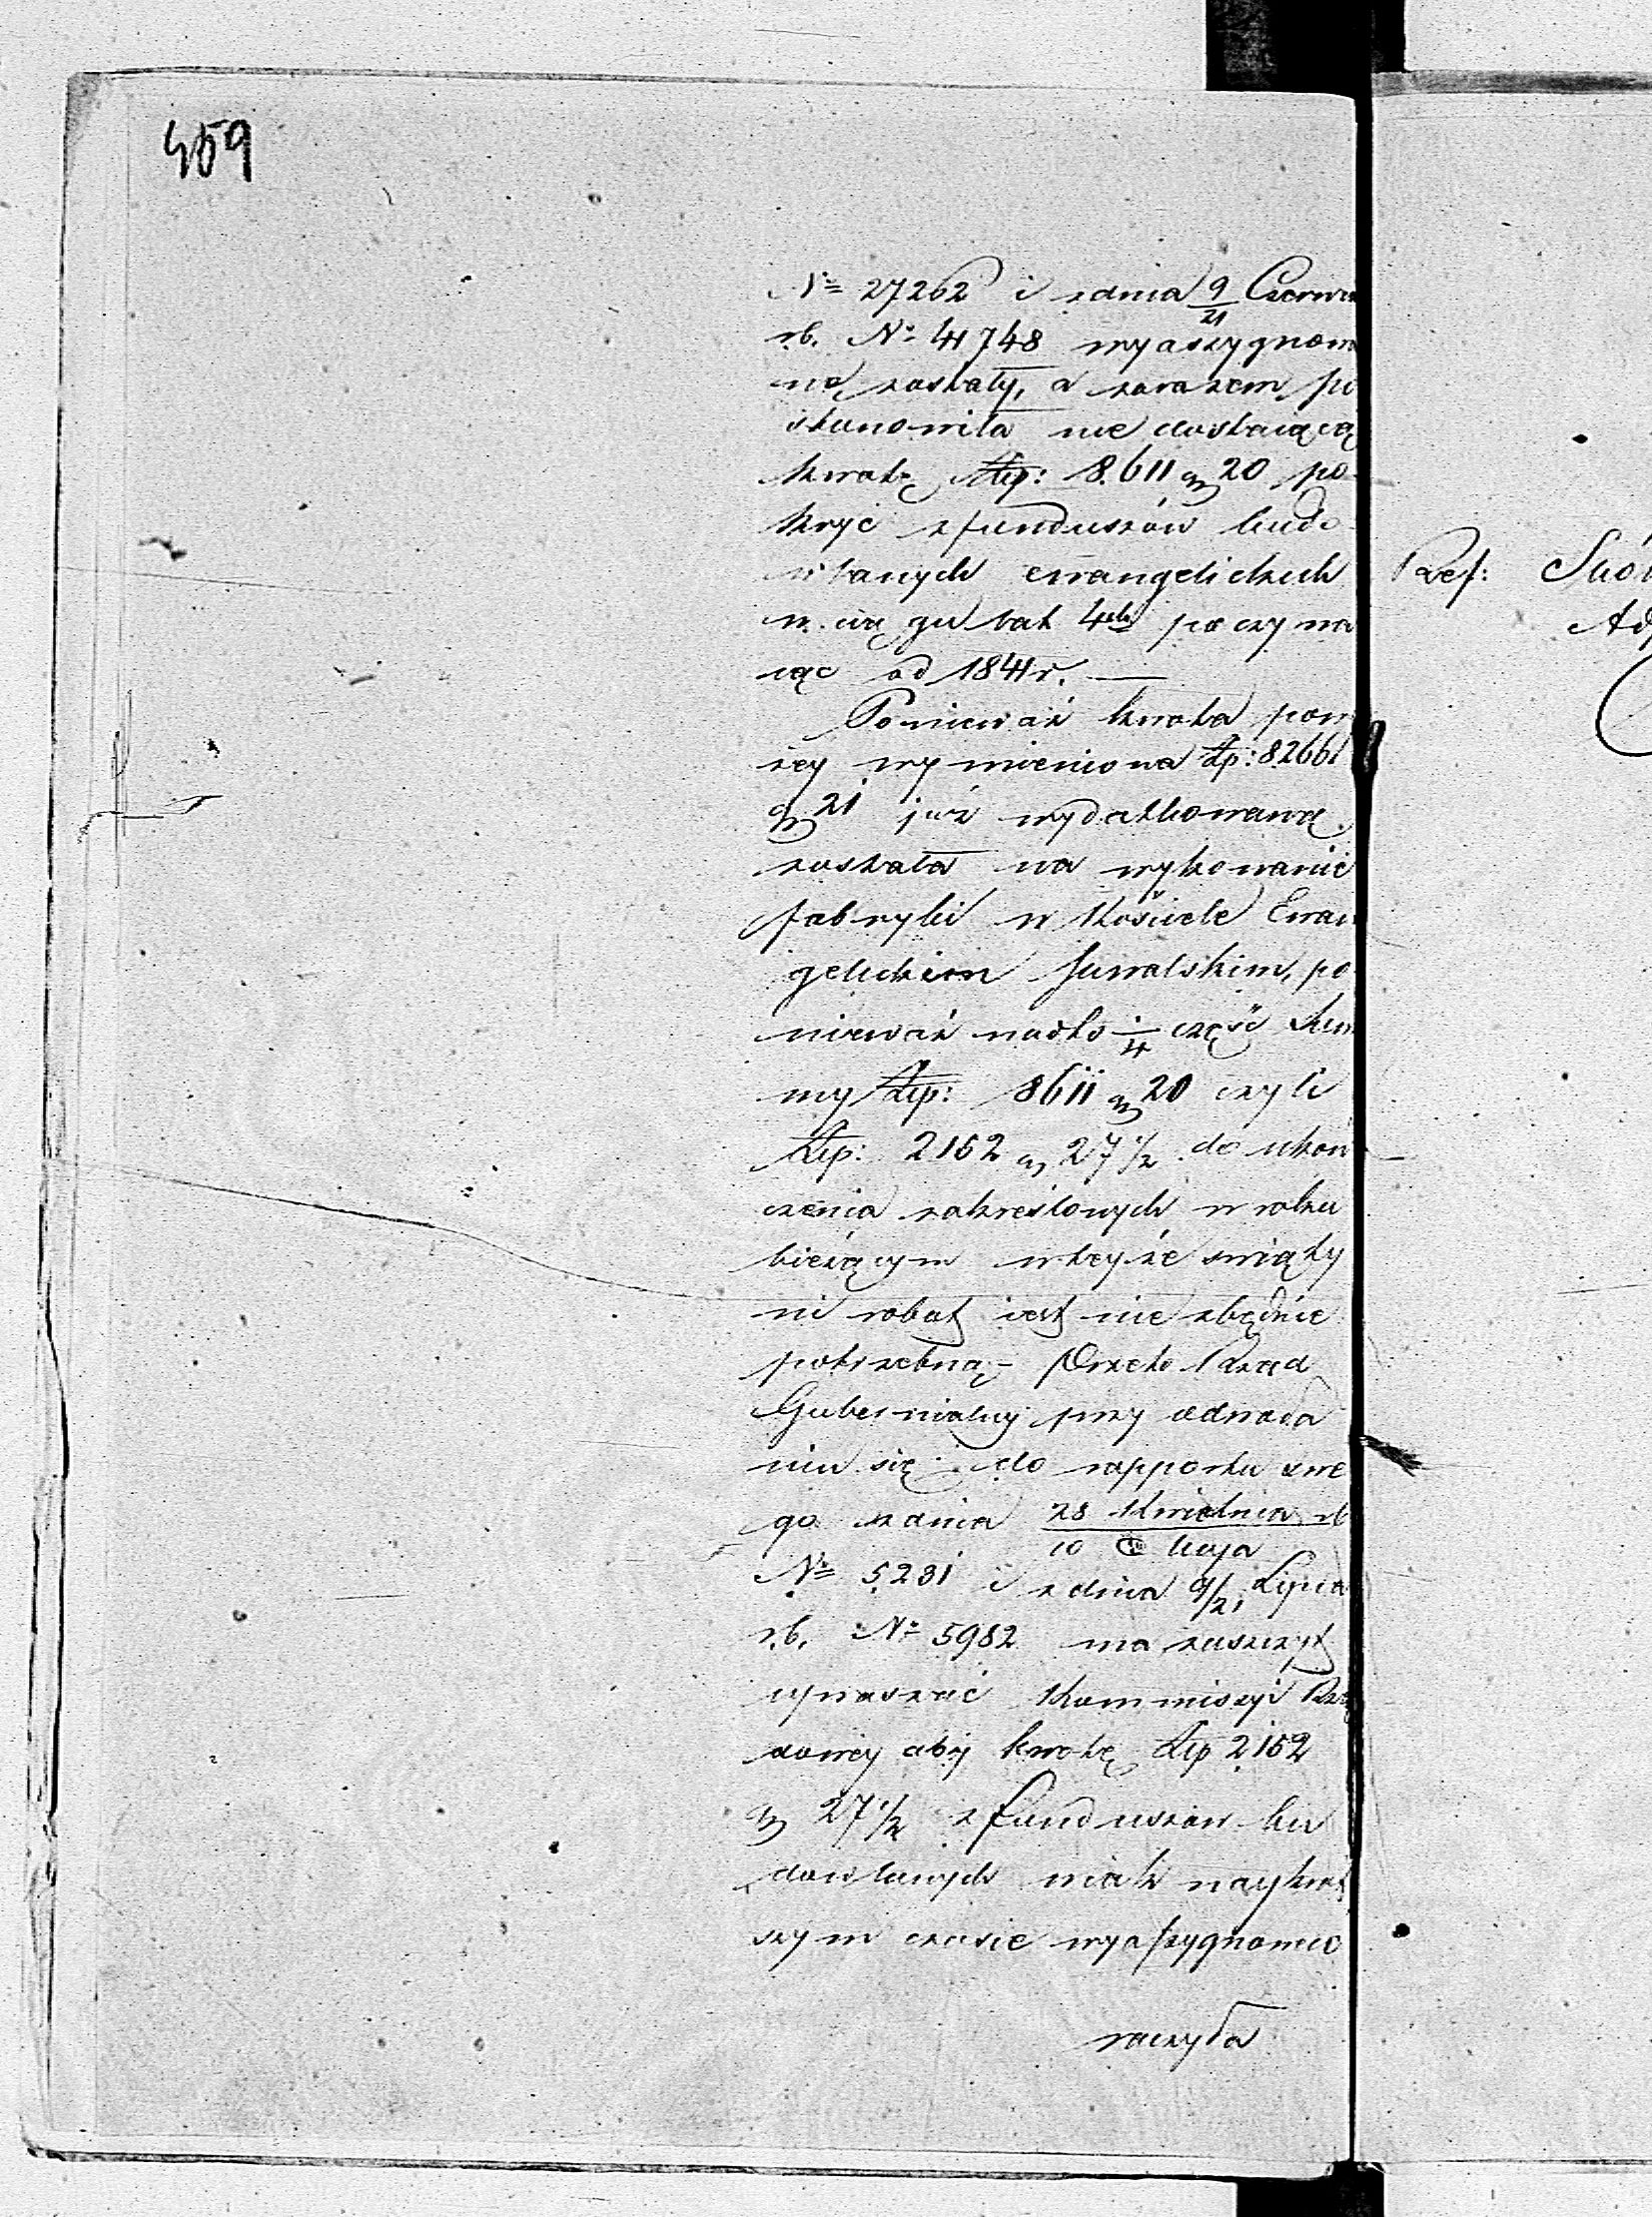 459
№ 27262 i z dnia 9/21 Czerwca
r.b. № 41748 wyaszygnowa
ne zostały, a zarazem po
stanowiła nie dostaiącą
kwotę Złp: 8.611 gr 20 po-
kryć z funduszów budo-
wlanych ewangelickich
w ciągu lat 4ch poczyna
iąc od 1841 r. —
Ponieważ kwota pow
żey wymieniona Złp: 8266
gr 21 już wydatkowaną
została na wykonanie
fabryki w Kościele Ewan
gelickim Suwalskim, po
nieważ nadto 1/4 część Sum
my Złp: 8611 gr 20 czyli
Złp: 2152 gr 27 1/2 do ukoń
czenia zakreślonych w roku
bieżącym w teyże świąty
ni robot iest nie zbędnie
potrzebną – Przeto Rząd
Gubernialny przy odwoła
niu się do rapportu swe
go z dnia 28 Kwietnia rb
10 Maja
№ 5231 i z dnia 9/21 Lipca
r.b. № 5982 ma zaszczyt
upraszać Kommissyi Rzą
dowey aby kwotę Złp 2152
gr 27 1/2 z funduszów bu
dowlanych w iak naykrót
szym czasie wyassygnować
raczyła
Ref: